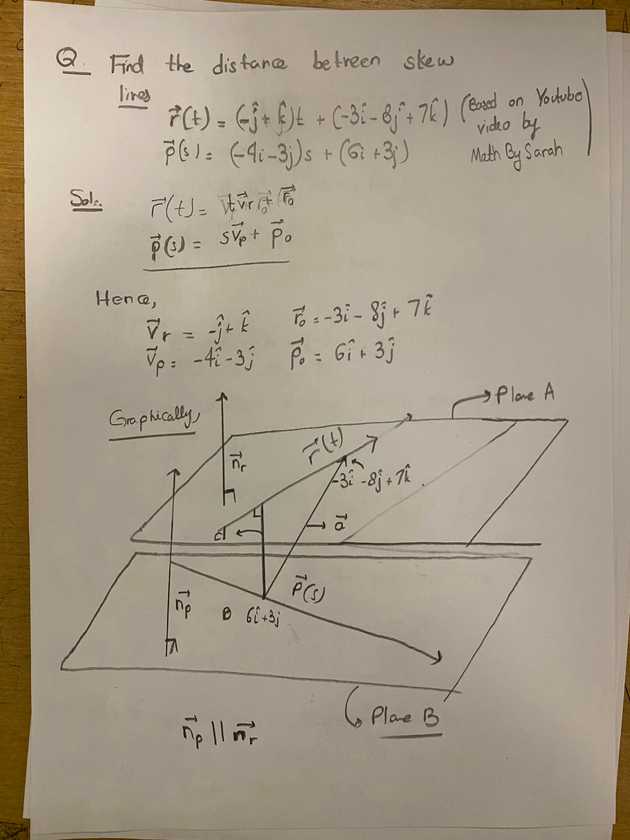 Q. Find the distance between skew
lines
r⃗(t) = (-ĵ + k̂)t + (-3î - 8ĵ + 7k̂)
p⃗(s) = (-4î - 3ĵ)s + (6î + 3ĵ)
(Based on Youtube
video by
Math By Sarah
Sol:.
r⃗(t) = t v⃗r + r⃗₀
p⃗(s) = s v⃗p + p⃗₀
Hence,
v⃗r = -ĵ + k̂ r⃗₀ = -3î - 8ĵ + 7k̂
v⃗p = -4î - 3ĵ p⃗₀ = 6î + 3ĵ
Graphically,
Plane A
n⃗r
r⃗(t)
-3î - 8ĵ + 7k̂
a⃗
n⃗p
p⃗(s)
B 6î + 3ĵ
Plane B
n⃗p || n⃗r